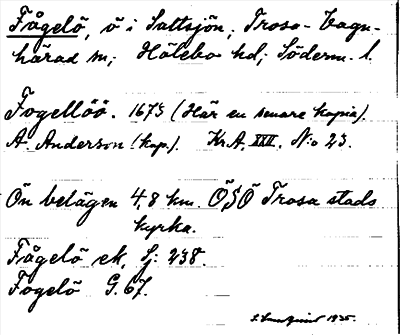 Fågelö, ö i Sattsjön; Trosa-Vagn-
härad sn; Hölebo hd; Söderm. l.
Fogellöö. 1675 (Här en senare kopia).
A. Anderson (kop.). Kr.A. XXII. N:o 23.
Ön belägen 4,8 km. ÖSÖ Trosa stads
kyrka.
Fågelö ek. Sj: 238.
Fogelö G. 67.
1935.